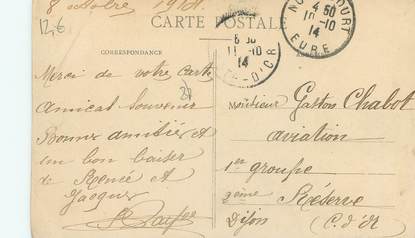 12,€
8 octobre 1914
CARTE POSTALE
CORRESPONDANCE
4 50
10-10
14
EURE
11-10
14
Merci de votre carte
amical souvenir
Bonne amitié et
un bon baiser
de Renée et
Jacques
Monsieur Gaston Chabot
aviation
1er groupe
3ème Réserve
Dijon
(C. d'Or)